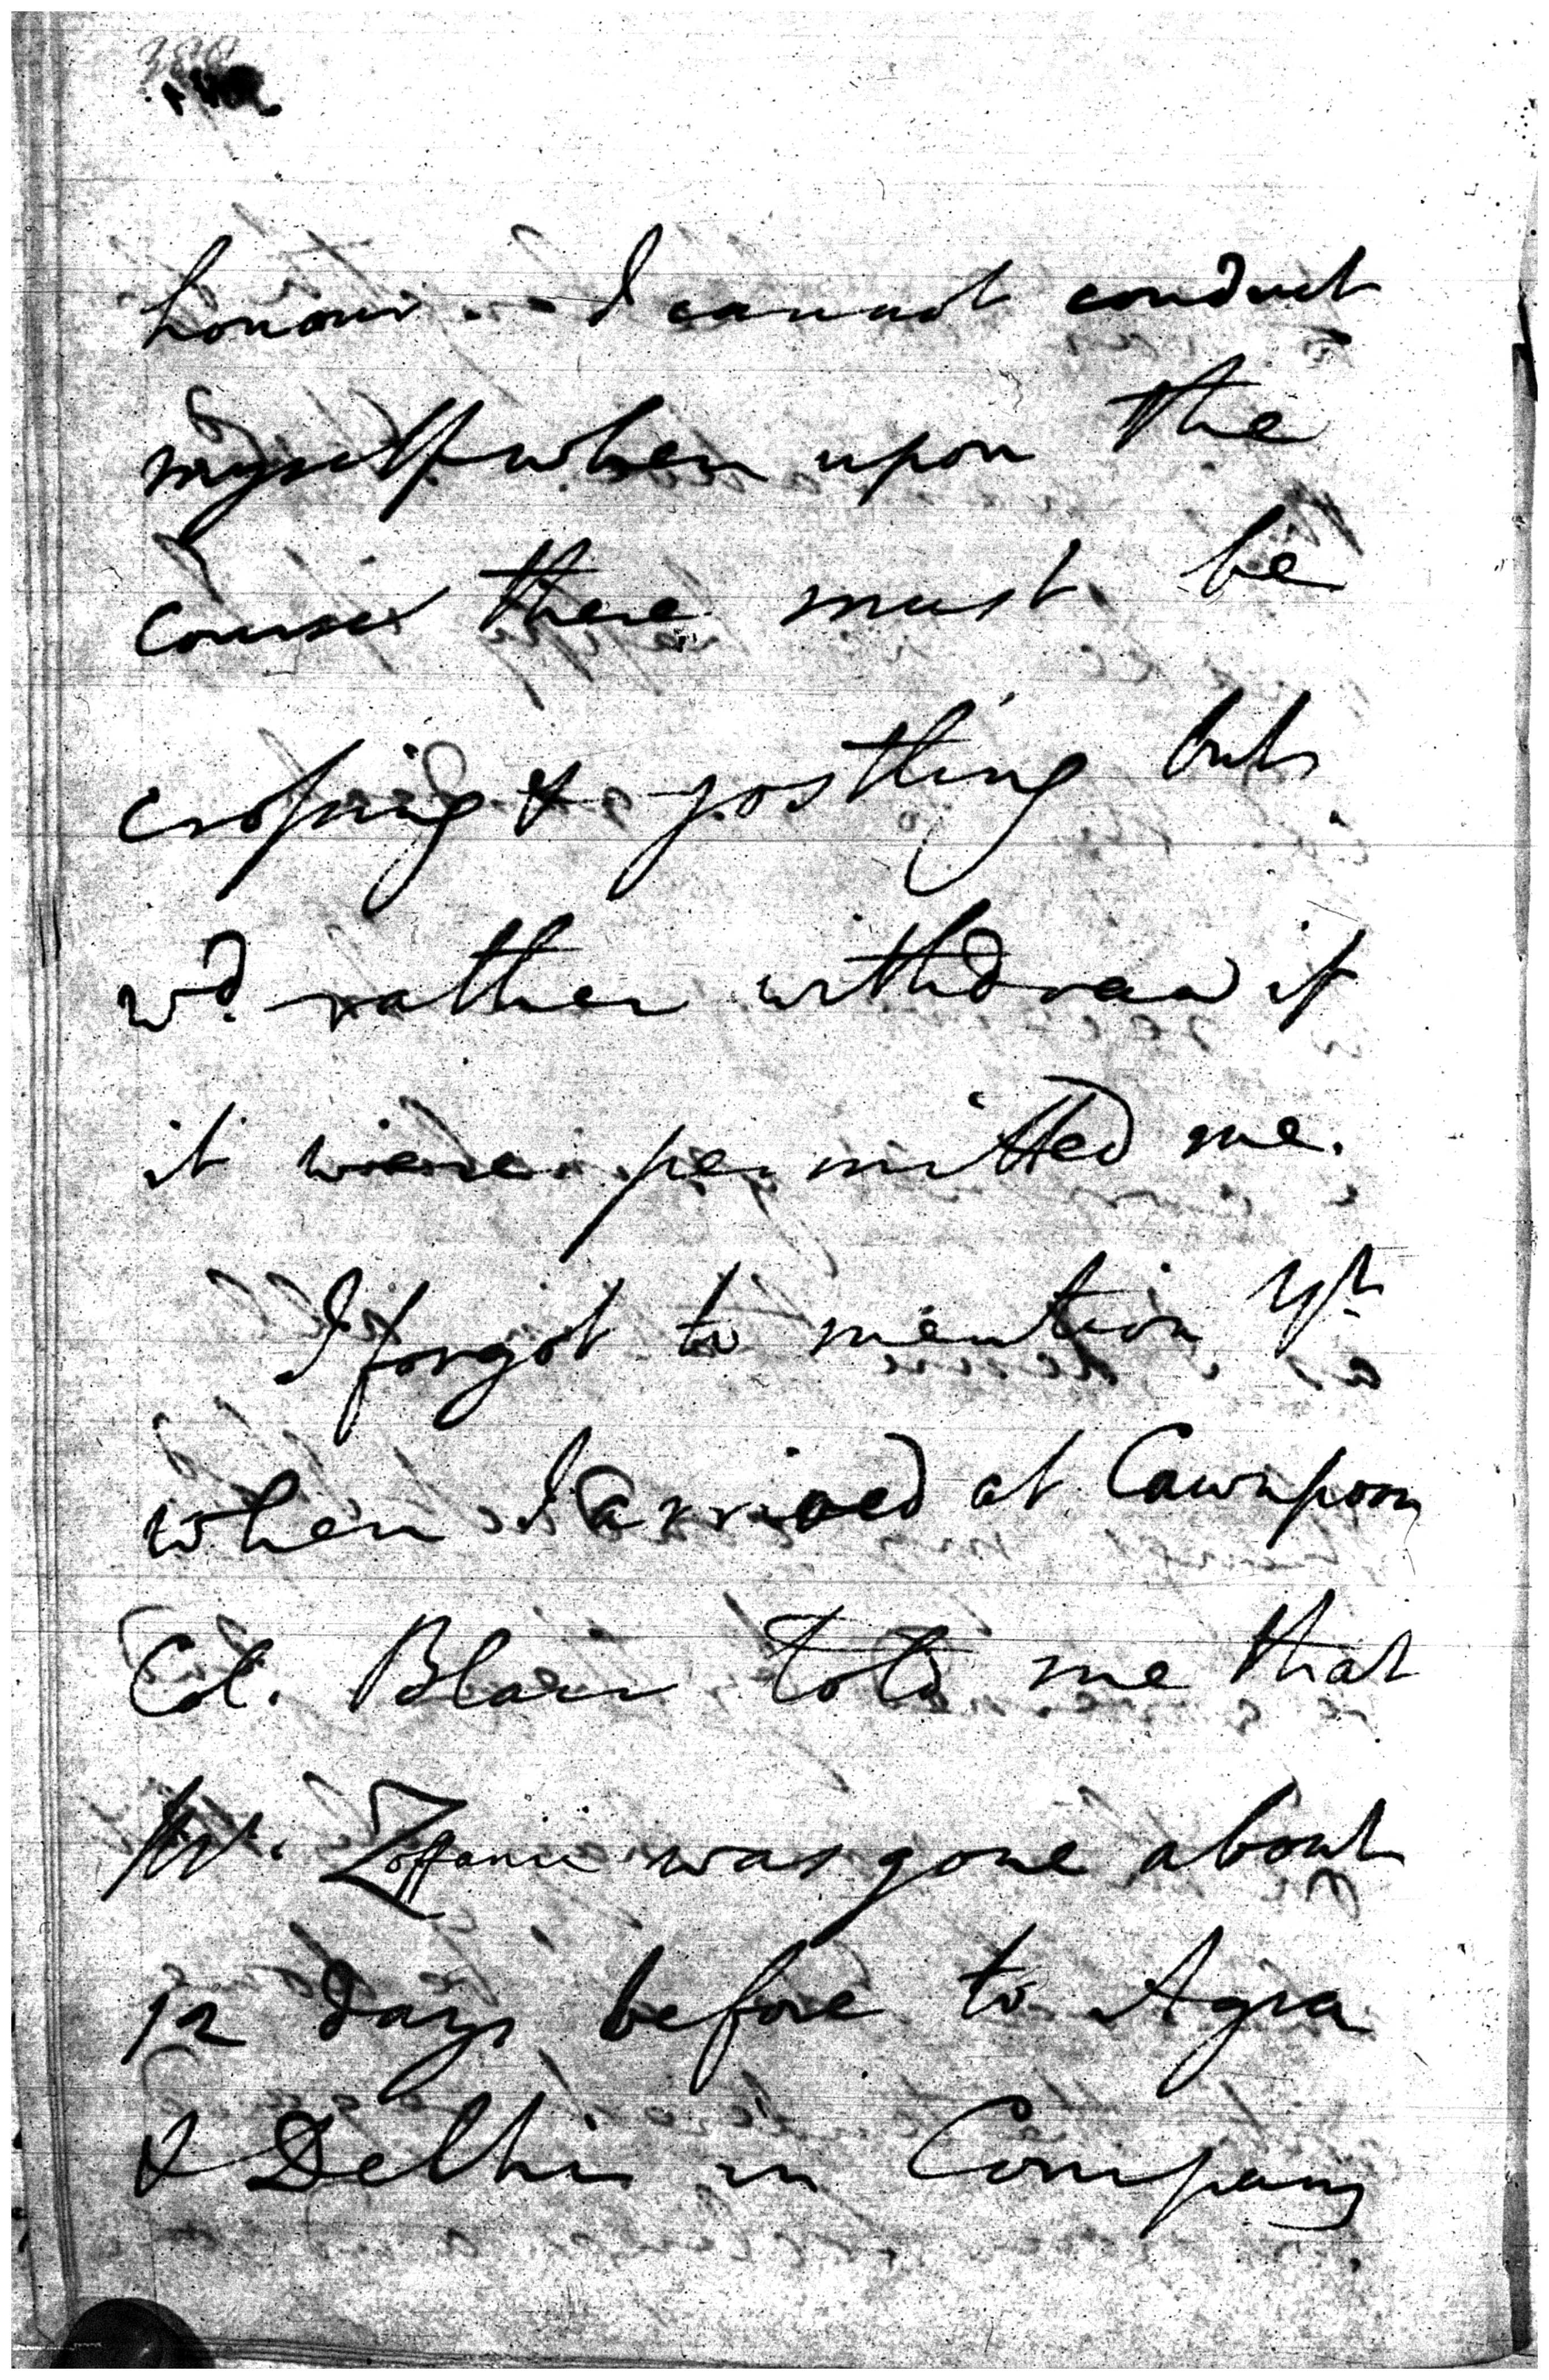 honour. - I cannot conduct
myself when upon the
course there must be
crossing & jostling but
wd. rather withdraw if
it were permitted me.
I forgot to mention yt
when I arrived at Cawnpore
Col. Blair told me that
Mr. Zoffanii was gone about
12 days before to Agra
& Delhi in Company